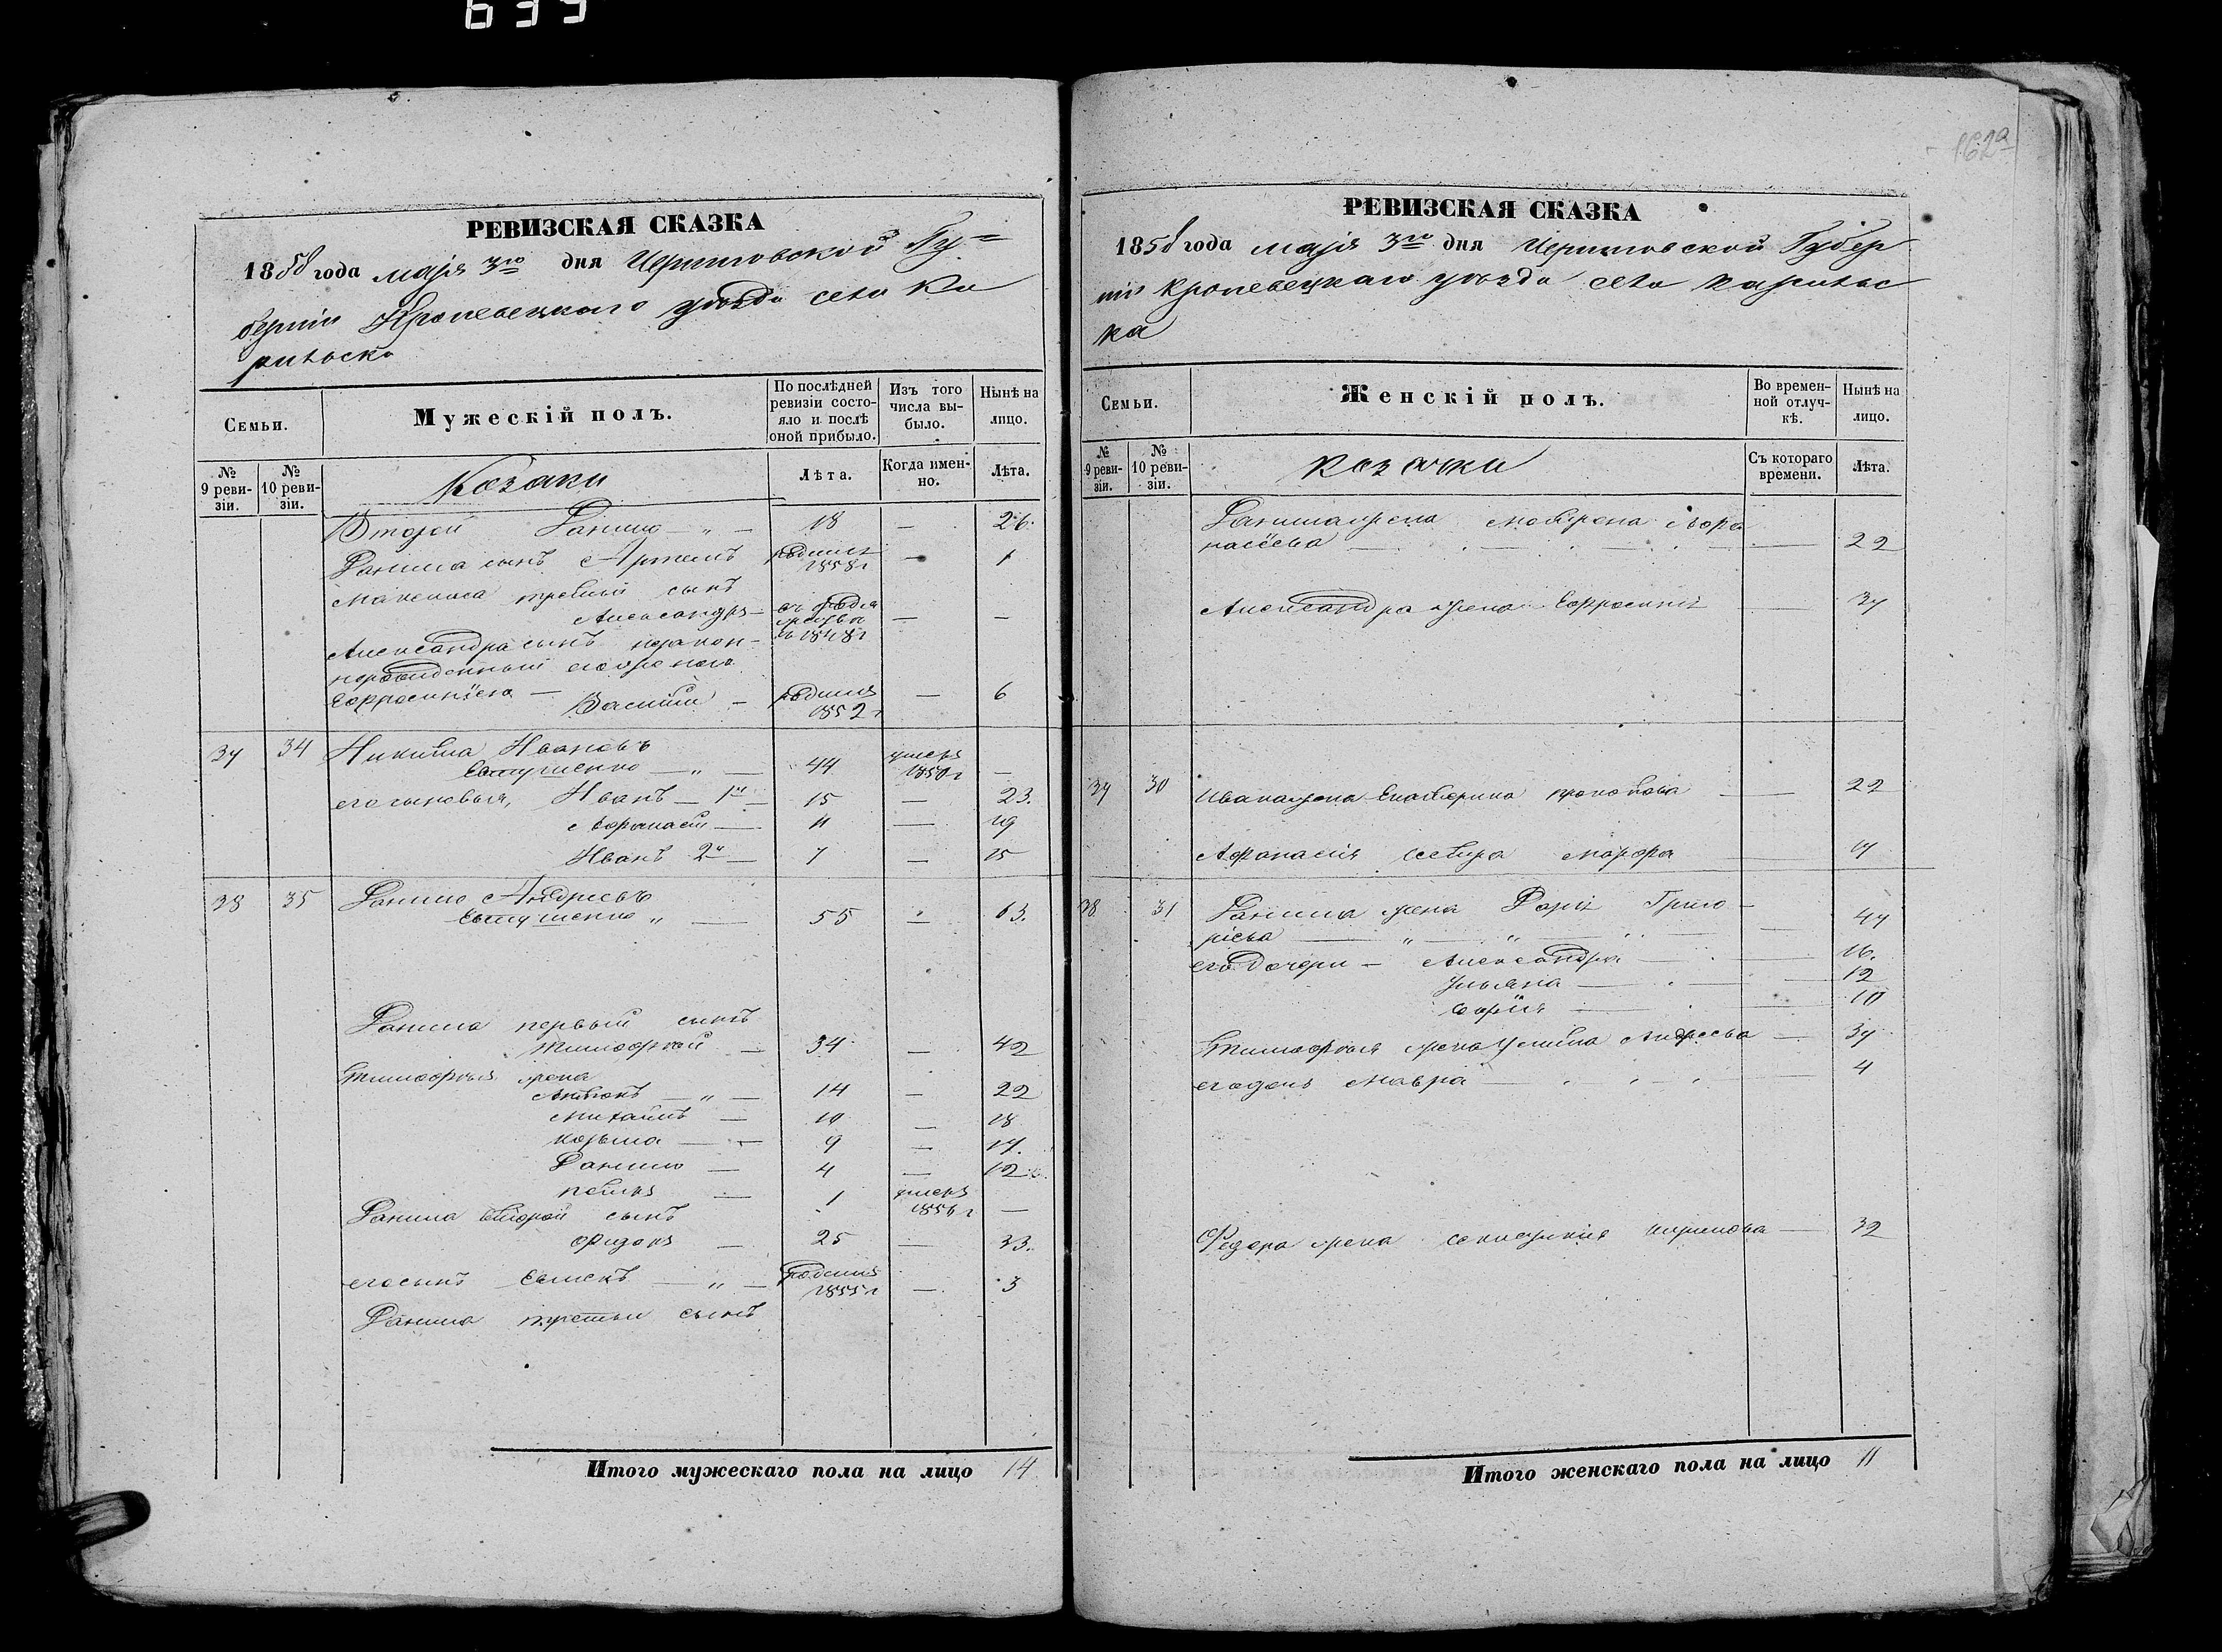 639
РЕВИЗСКАЯ СКАЗКА
1858 года маія 3го дня Черниговской Гу=
берніи Кролевецкаго уѣзда села Ка
рильска
Семьи.
Мужескій полъ.
По послѣдней ревизіи состояло и послѣ оной прибыло.
Изъ того числа выбыло.
Нынѣ на лицо.
№ 9 ревизіи.
№ 10 ревизіи.
Козаки
Лѣта.
Когда именно.
Лѣта.
Второй Данило „ — 18 — 26.
Данила сынъ Артемъ родился 1858 г — 1
третій сынъ
Александръ — — —
Александра сынъ незакон-
норожденный его женою
Ефросиніею — Василій — родился 1852 г — 6
37 34 Никита Ивановъ
Евтушенко — „ — 44 умеръ 1850 г —
его сыновья, Иванъ — 1й — 15 — 23.
Афанасій — 11 — 19
Иванъ 2й — 7 — 15
38 35 Данило Андреевъ
Евтушенко „ — 55 — 63.
Данила первый сынъ
Тимофѣй — 34 — 42
Тимофѣя
Антонъ — „ — 14 — 22
Михаилъ — 10 — 18
Козьма — 9 — 17.
Данило — 4 — 12
Петръ — 1 умеръ 1856 г —
Данила второй сынъ
Фидоръ — 25 — 33.
его сынъ — „ — родился 1855 г — 3
Данила третьи сынъ
Итого мужескаго пола на лицо 14
162а
РЕВИЗСКАЯ СКАЗКА
1858 года маія 3го дня Черниговской Губер
ніи Кролевецкаго уѣзда села Карильс
ка
Семьи.
Женскій полъ.
Во временной отлучкѣ.
Нынѣ на лицо.
№ 9 ревизіи.
№ 10 ревизіи.
козачки
Съ котораго времени.
Лѣта.
Данила жена Матрена Афо
насіева — 22
Александра жена Ефросинія — 37
37 30 Ивана жена Екатерина Прокопова — 22
Афанасія сестра Марфа — 17
38 31 Данила жена Дарія Григо-
ріева — „ — „ — 47
его дочери — Александра — 16.
Ульяна — 12
Софія — 10
Тимофѣя жена Андреева — 37
его дочь Мавра — 4
Фидора жена — 32
Итого женскаго пола на лицо 11